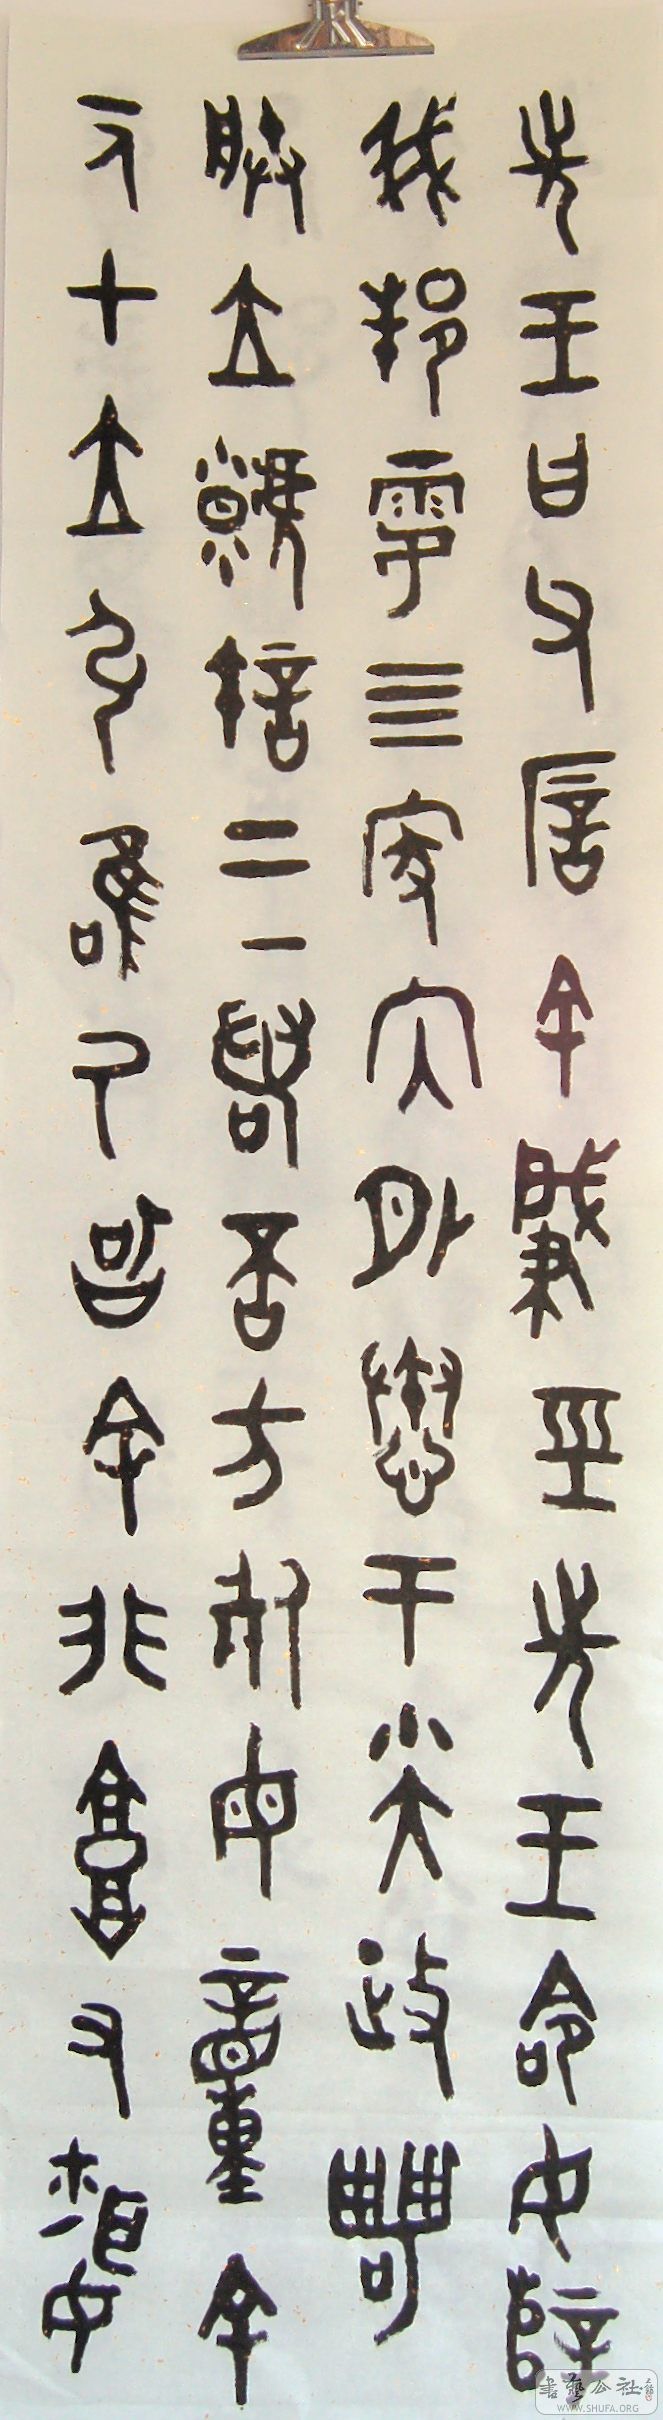 先王曰父厝余肇巠先王命女辪
我邦雩亖家内外惷于小大政粤
朕立虩许上下若否方死毋童余
一人才立弘唯乃智余非庸又昏
書藝公社
WWW.SHUFA.ORG